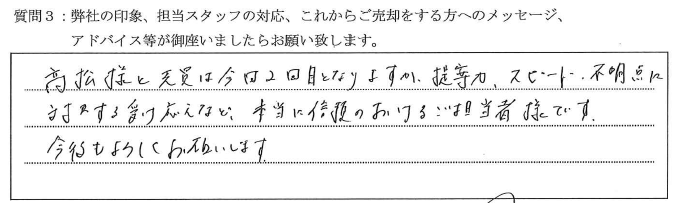 質問３：弊社の印象、担当スタッフの対応、これからご売却をする方へのメッセージ、
アドバイス等が御座いましたらお願い致します。
高松様と売買は今回２回目となりますが、提案力、スピード、不明点に
対する受け応えなど、本当に信頼のおけるご担当者様です。
今後もよろしくお願いします